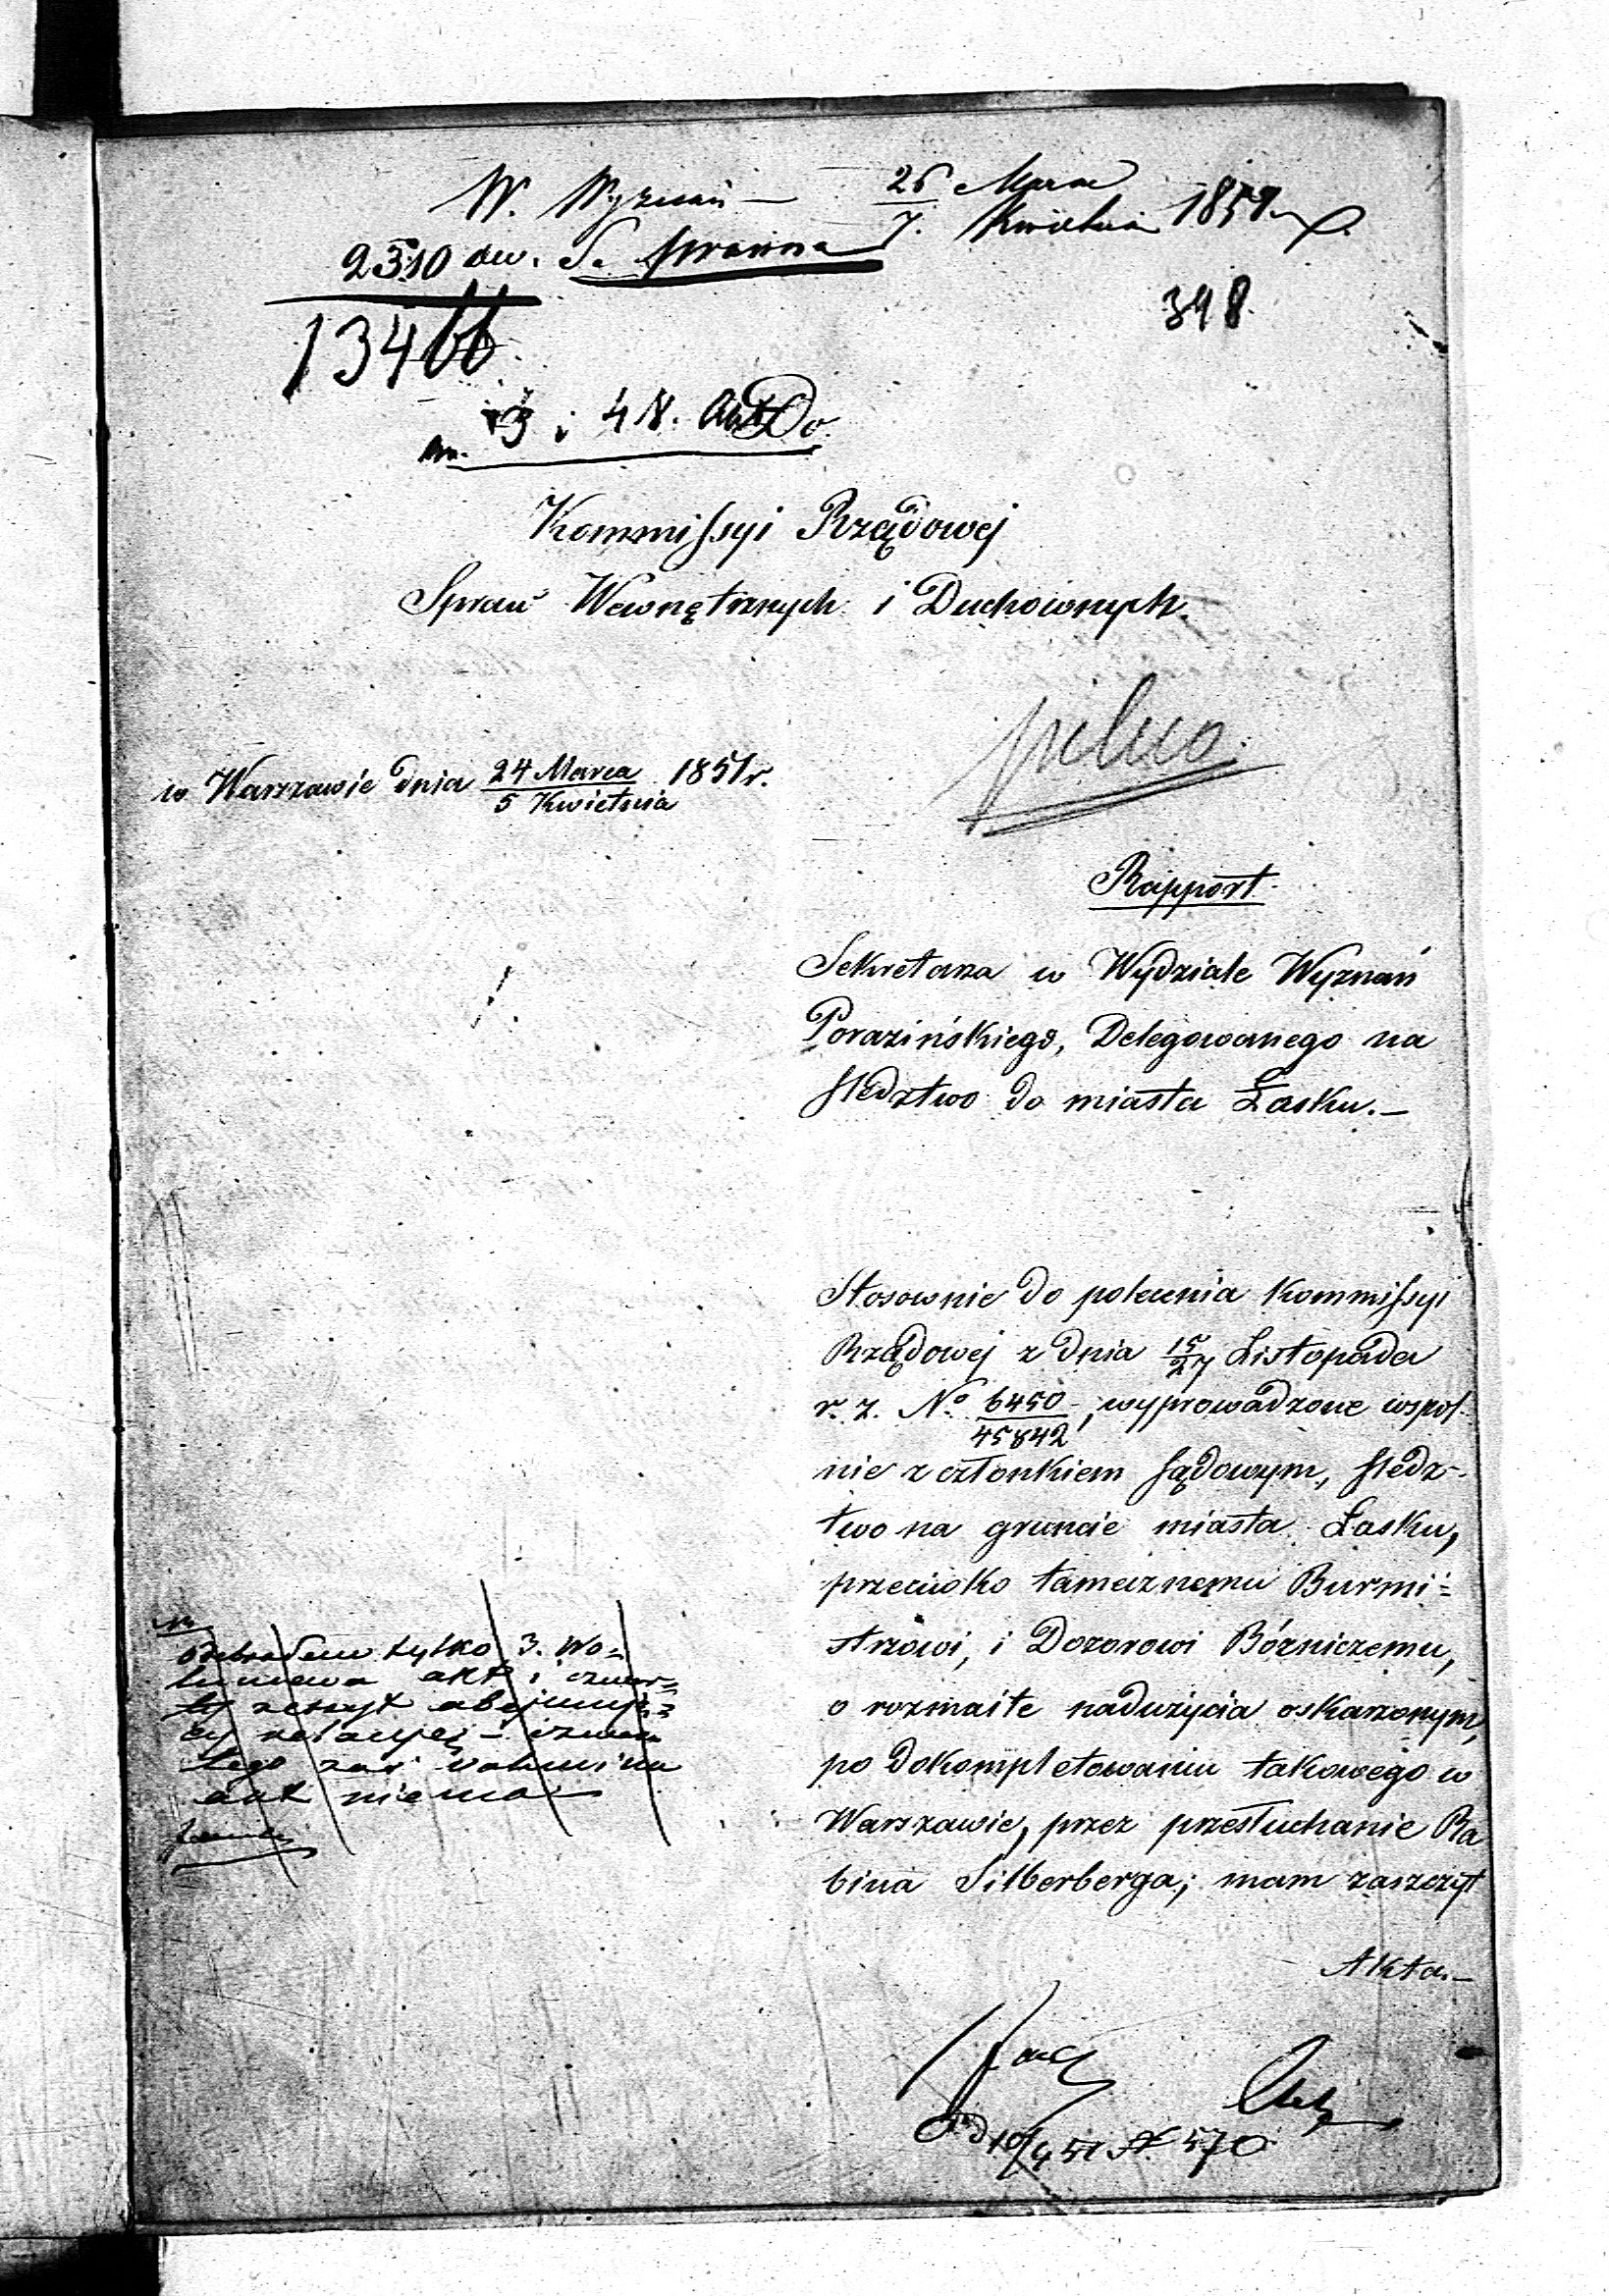 W. Wyznań — 26 Marca
7. Kwietnia 1851
2310
13466
348
3 i 4 N. Do
Kommissyi Rządowej
Spraw Wewnętrznych i Duchownych.
pilno
w Warszawie dnia 24 Marca 1851 r.
5 Kwietnia
Rapport
Sekretarza w Wydziale Wyznań
Porazińskiego, Delegowanego na
śledztwo do miasta Łasku.—
Stosownie do polecenia Kommissyi
Rządowej z dnia 15/27 Listopada
r. z. No 6450/45842, wyprowadzone wspol-
nie z członkiem sądowym, śledz-
two na gruncie miasta Łasku,
przeciwko tamecznemu Burmi-
strzowi, i Dozorowi Bóżniczemu,
o rozmaite nadużycia oskarzonym,
po dokompletowaniu takowego w
Warszawie, przez przesłuchanie Ra
bina Silberberga; mam zaszczyt
Akta.—
Odebrałem tylko 3. Wo-
lumina akt i czwar-
ty zeszyt obejmują-
cy relacyej — czwar
tego zaś volumina
akt niema —
570